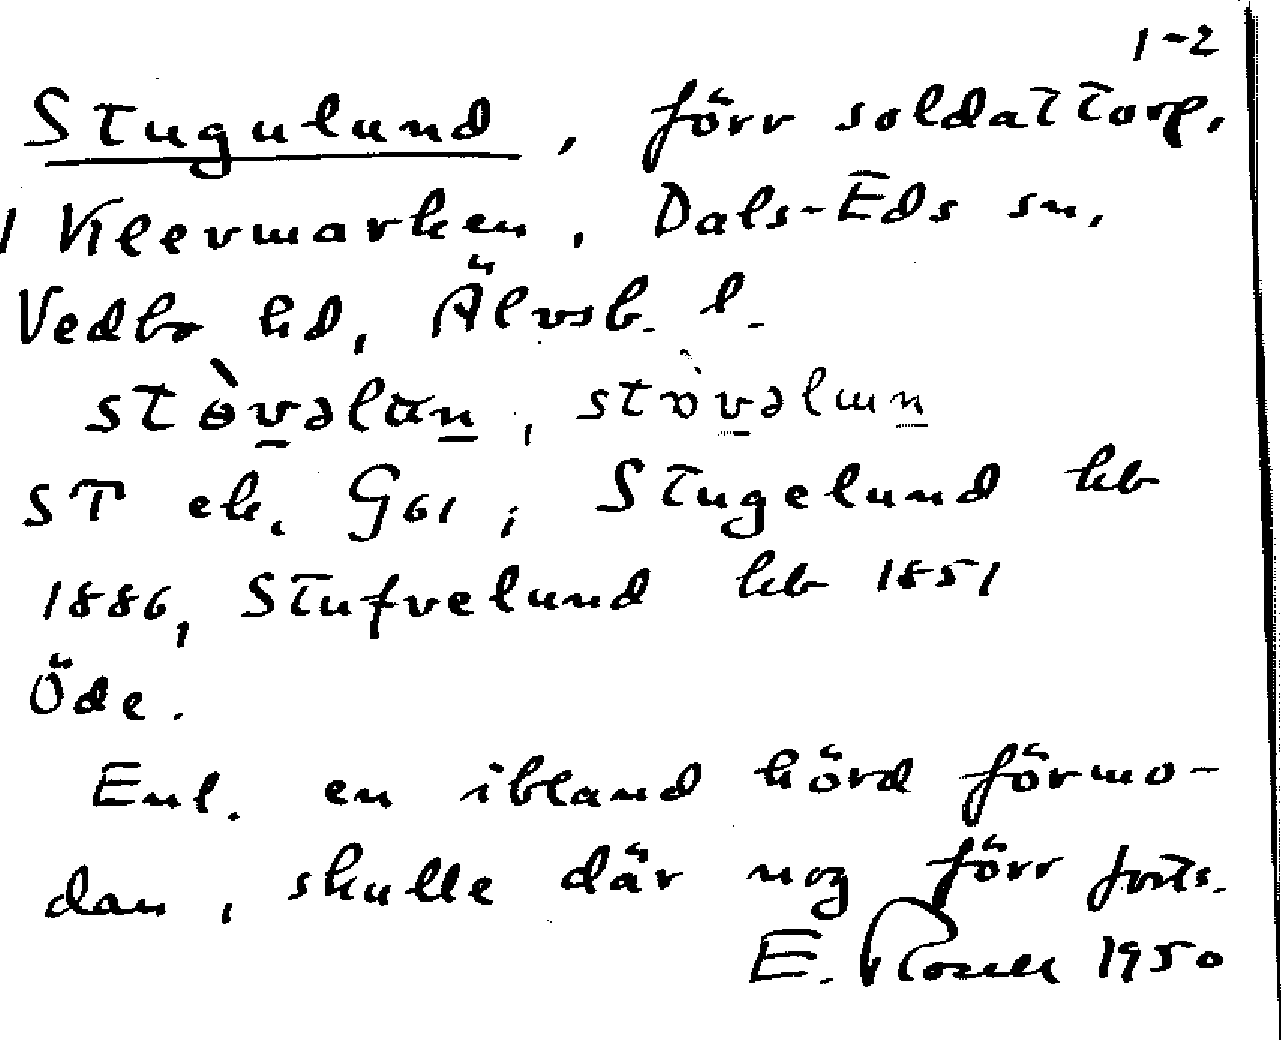 1-2
Stugulund, förr soldattorp,
1 Klevmarken, Dals-Eds sn,
Vedbo hd, Älvsb. l.
stòvəlun, stòvəlun
ST ek. G61; Stugelund kb
1886, Stufvelund kb 1851
Öde.
Enl. en ibland hörd förmo-
dan, skulle där nog förr forts.
E. Rosell 1950